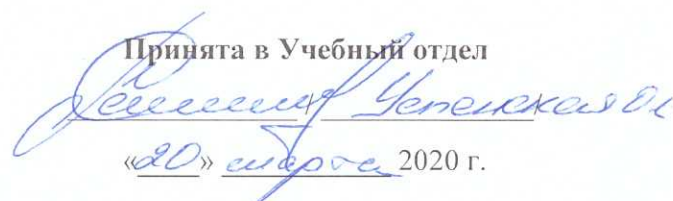 Принята в Учебный отдел
/ Успенская О
«20» марта 2020 г.